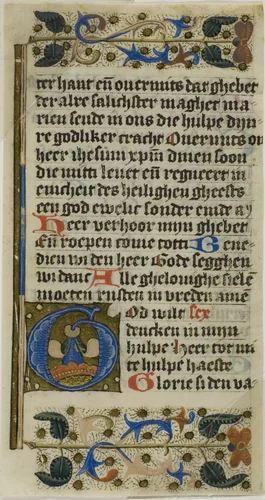 ter hant en̄ ouermits dat ghebet
der alre salichster maghet ma
rien sende in ons die hulpe dijn
re godliker cracht Ouermits on
heer ihesum xp̄m dinen soen
die mitti leuet en̄ regneert in
enicheit des heilighen gheests
een god ewelic sonder einde
Heer verhoor mijn ghebet
En̄ roepen come totti Bene
dien wi den heer Gode segghen
wi danc Alle ghelouighe sielē
moeten rusten in vreden amē
God wilt sex
dencken in mijn
hulpe Heer tot mi
te hulpe haeste
Glorie si den va